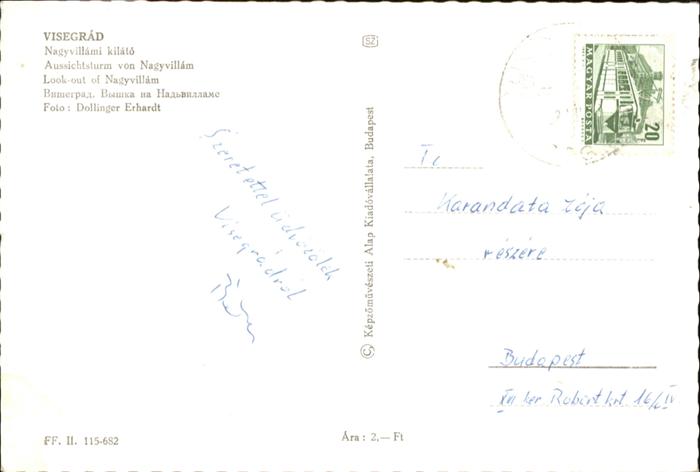 VISEGRÁD
Nagyvillámi kilátó
Aussichtsturm von Nagyvillám
Look-out of Nagyvillám
Вишеград. Вышка на Надьвилламе
Foto: Dollinger Erhardt
SZ
MAGYAR POSTA
20f
Szeretettel üdvözölek
Visegrádról
© Képzőművészeti Alap Kiadóvállalata, Budapest
Karandata Zója
részére
Budapest
Róbert krt. 16/c IV
FF. II. 115-682
Ára: 2,— Ft